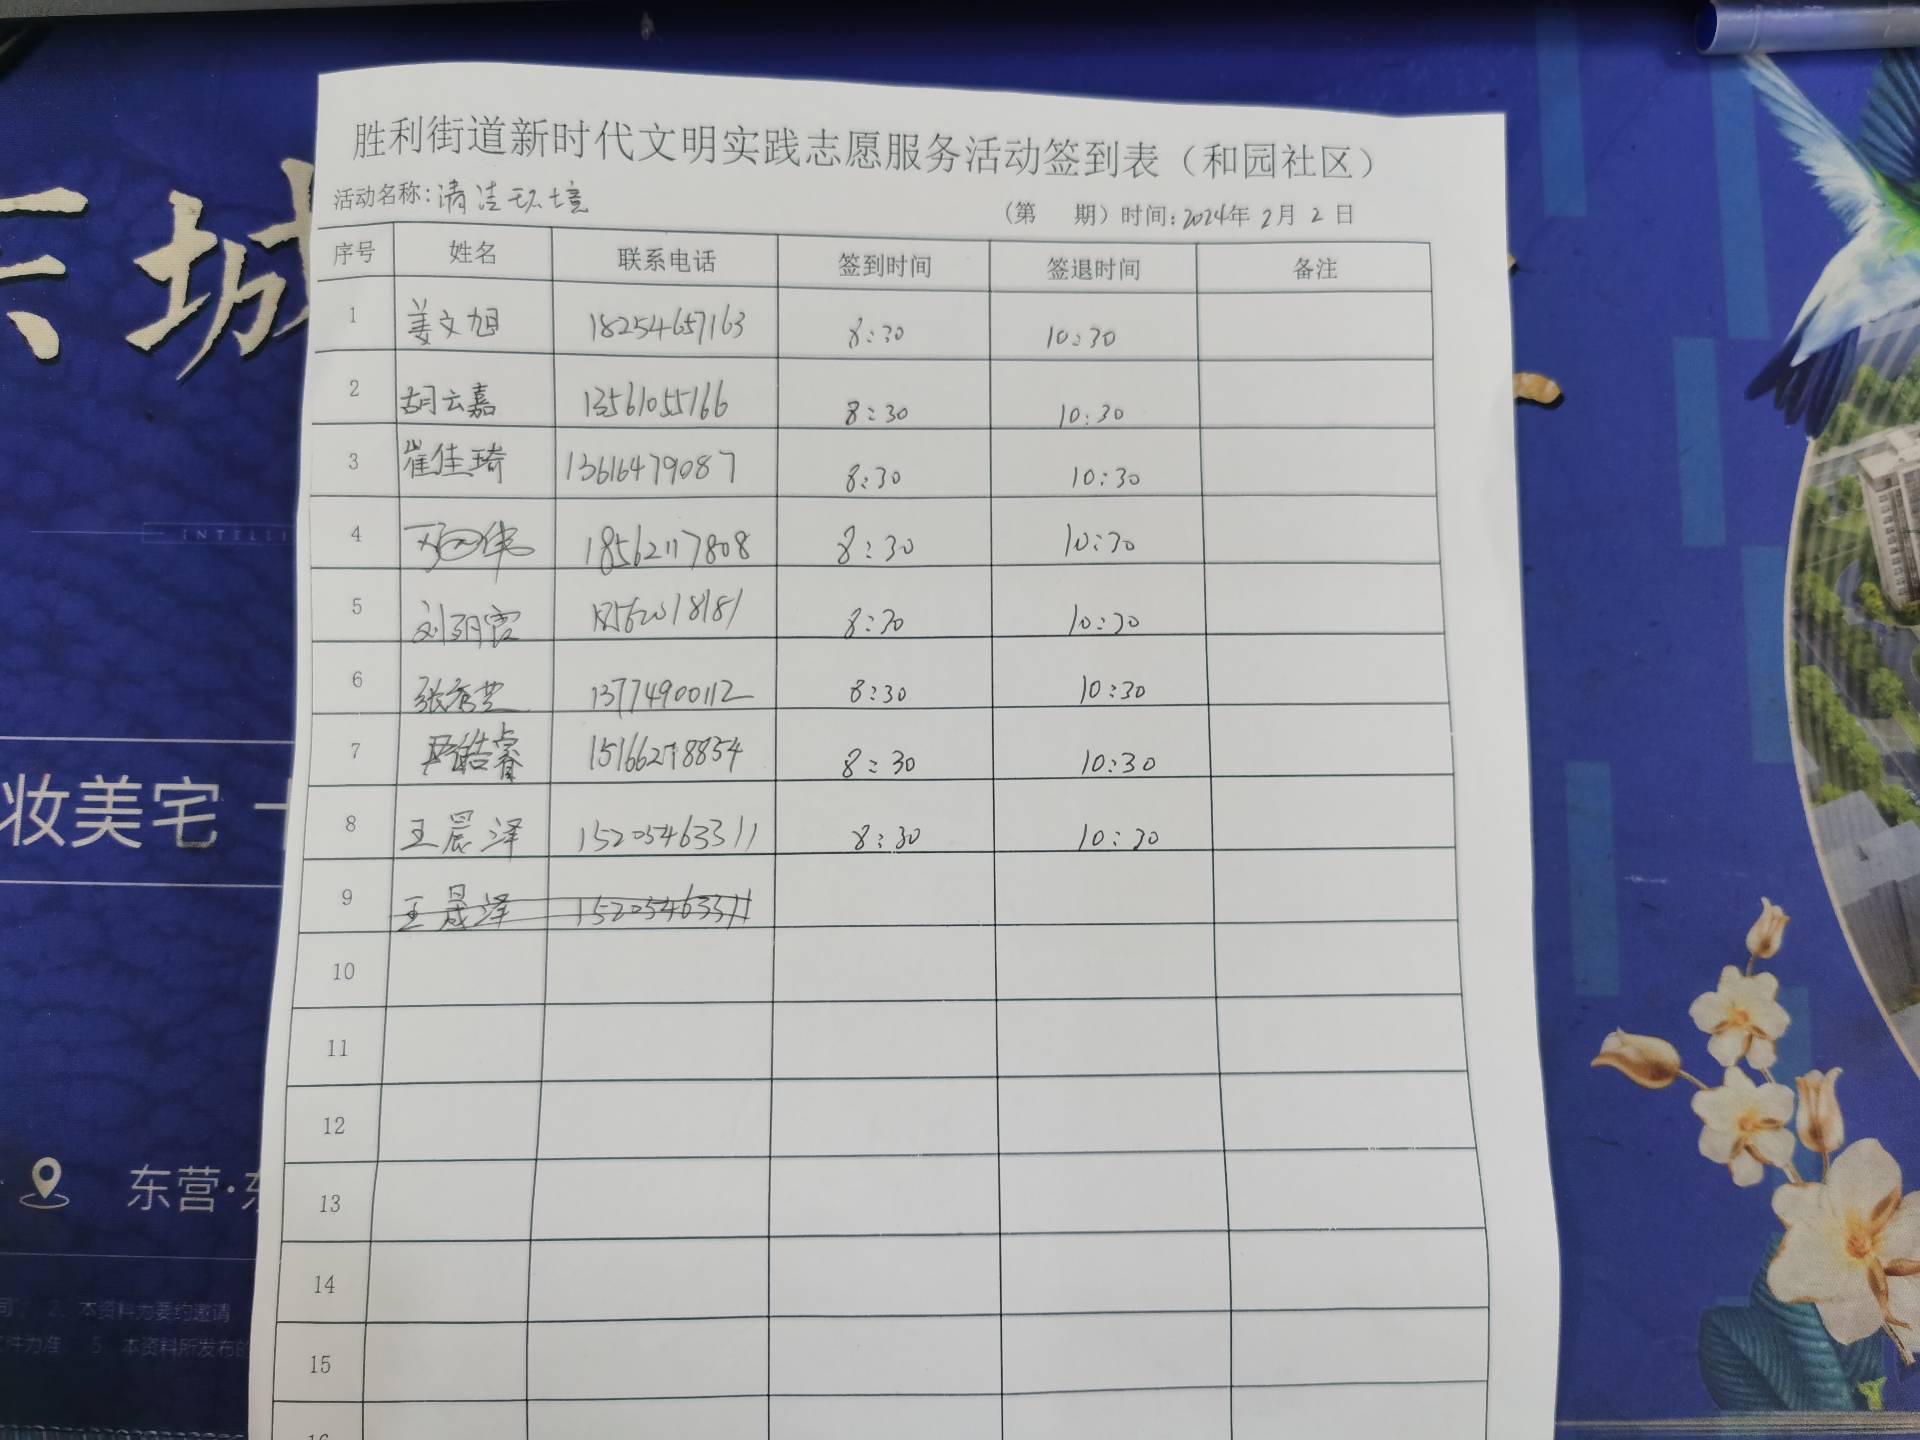 胜利街道新时代文明实践志愿服务活动签到表（和园社区）
活动名称：清洁环境
（第 期）时间：2024年2月2日
序号 姓名 联系电话 签到时间 签退时间 备注
1 姜文旭 18254657163 8:30 10:30
2 胡云嘉 13561055166 8:30 10:30
3 崔佳琦 13616479087 8:30 10:30
4 18562117808 8:30 10:30
5 8:30 10:30
6 张秀芝 13774900112 8:30 10:30
7 尹皓睿 8:30 10:30
8 王晨泽 15205463311 8:30 10:30
9 王晟泽 15205463311
10
11
12
13
14
15
16
东城
INTELLI
妆美宅
东营·东
2、本资料为要约邀请
件为准 5、本资料所发布的